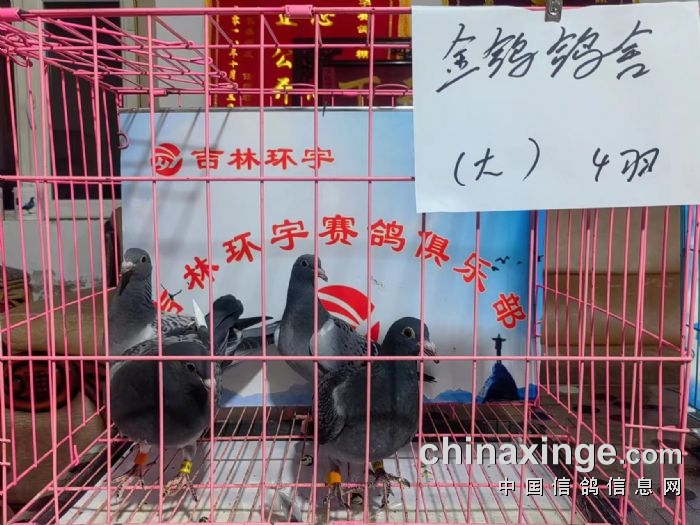 金鸽鸽舍
(大) 4羽
吉林环宇
吉林环宇赛鸽俱乐部
chinaxinge.com
中国信鸽信息网